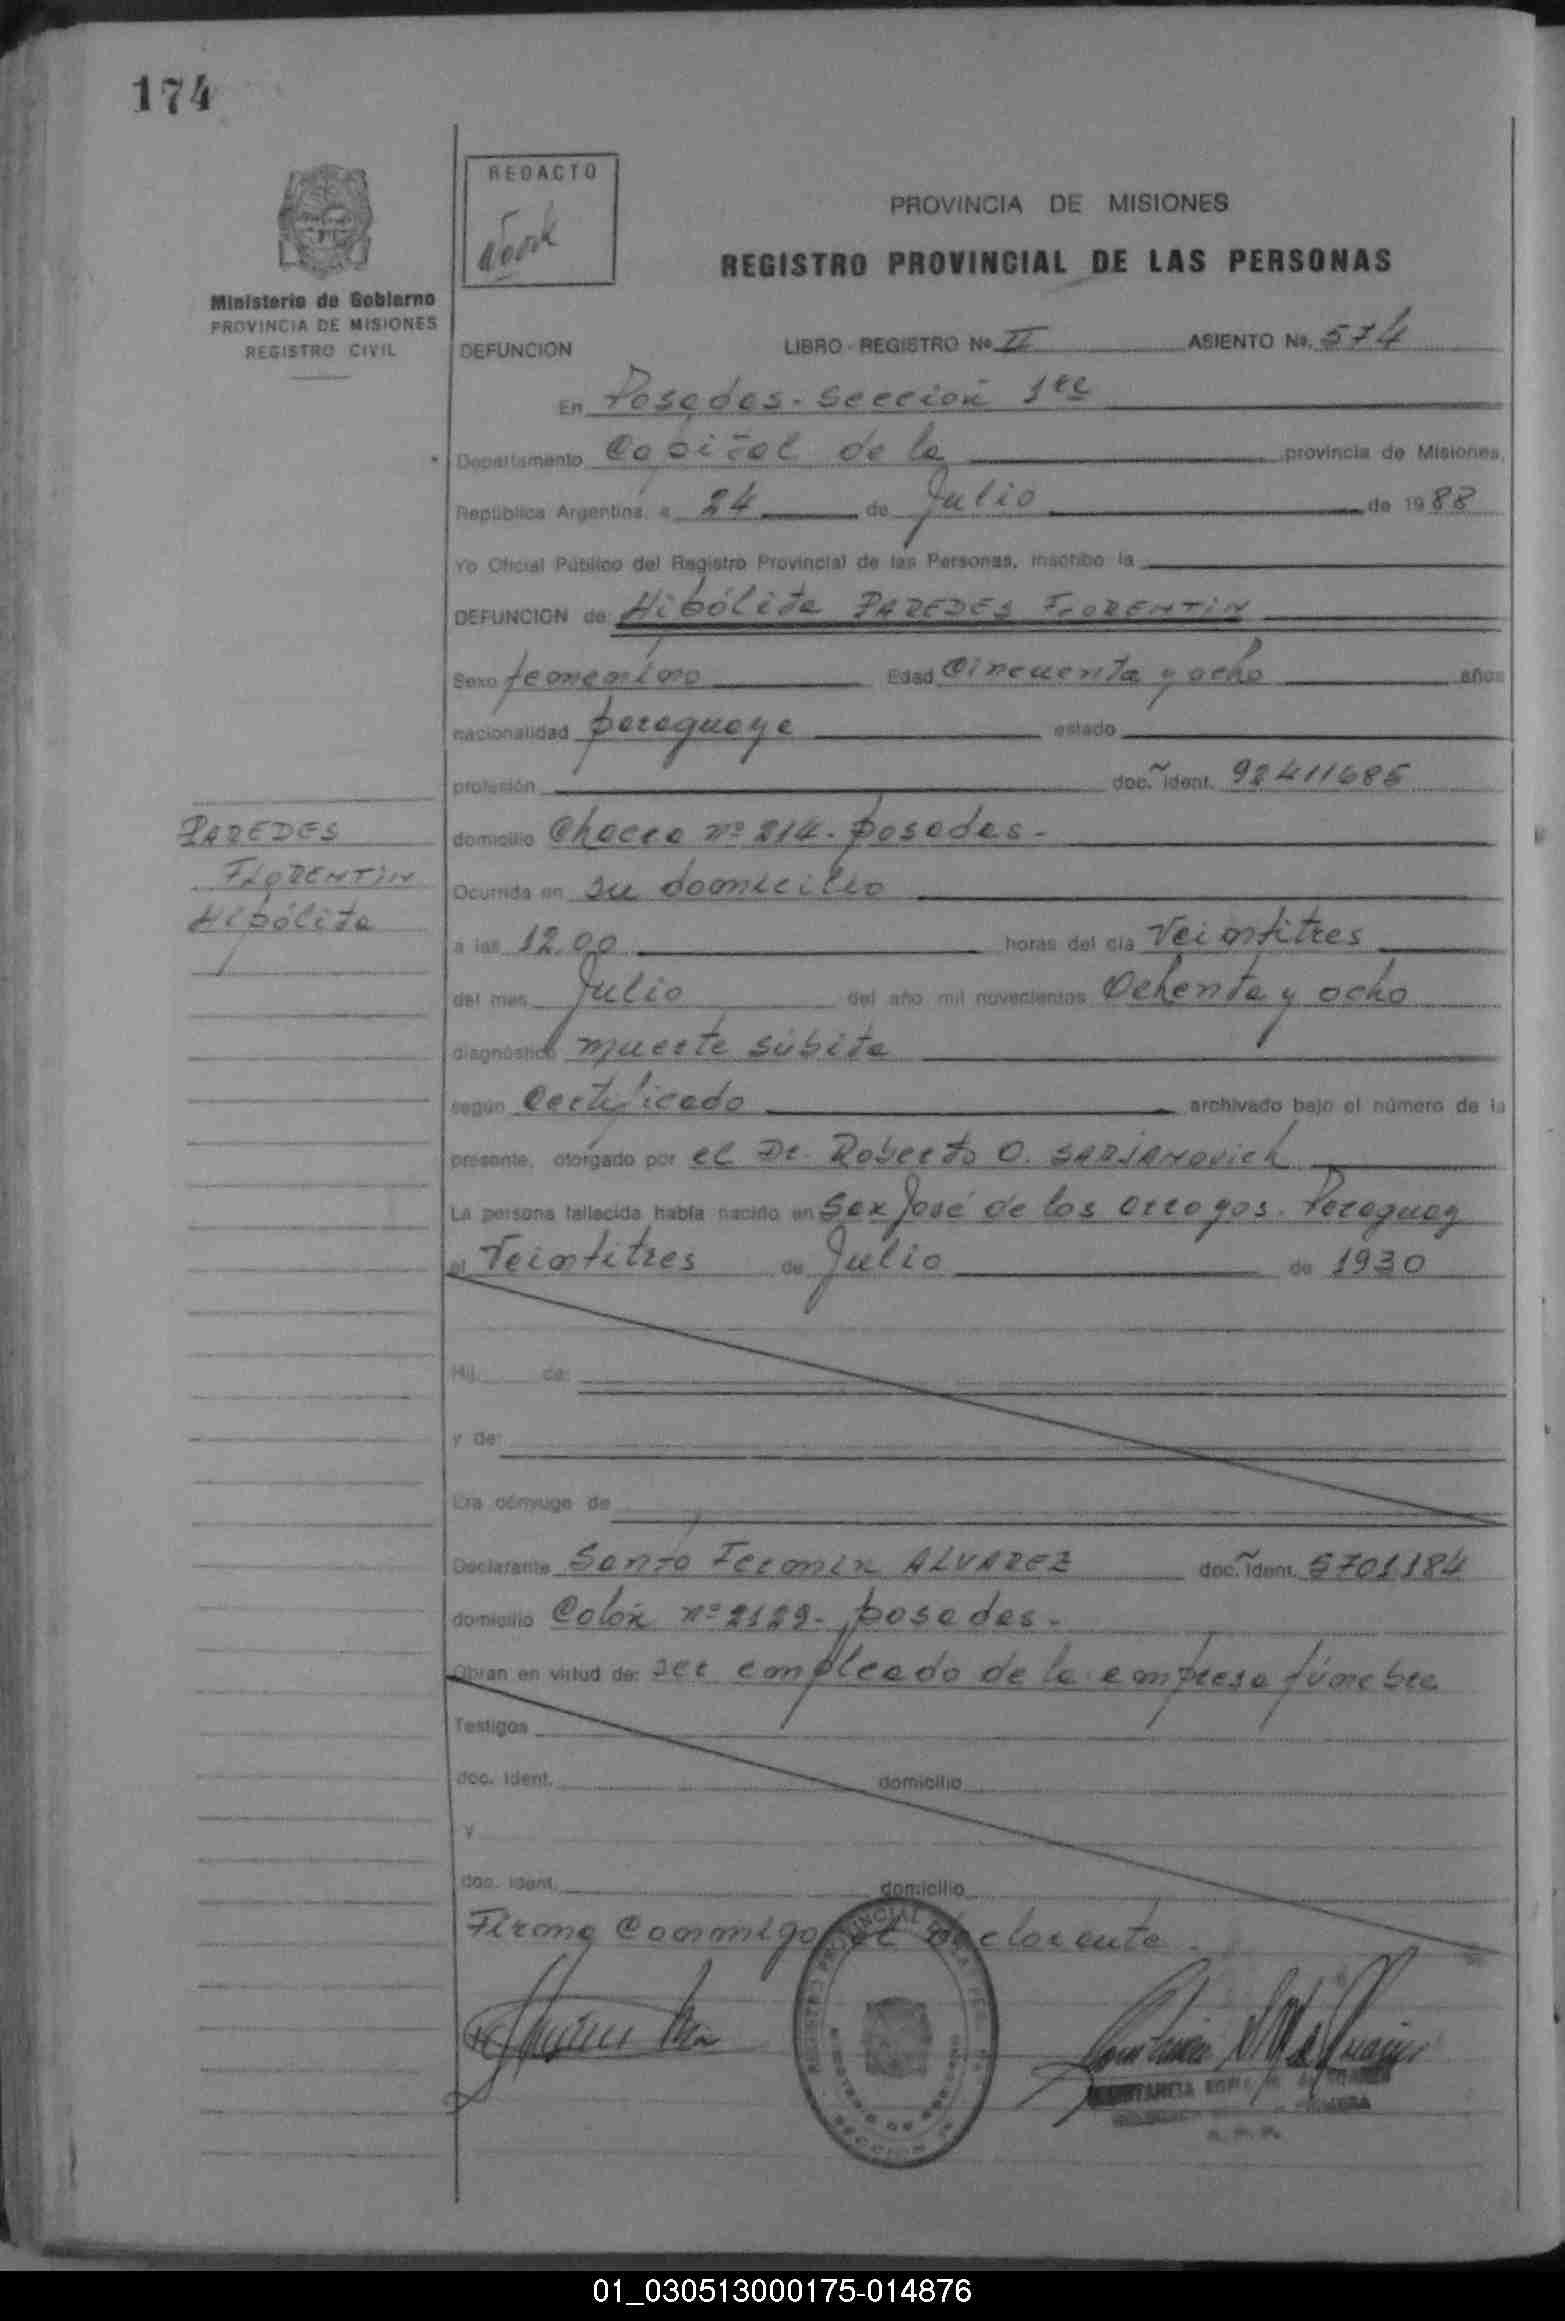 174
REDACTO
PROVINCIA DE MISIONES
REGISTRO PROVINCIAL DE LAS PERSONAS
Ministerio de Gobierno
PROVINCIA DE MISIONES
REGISTRO CIVIL
DEFUNCION LIBRO - REGISTRO Nº II ASIENTO Nº. 574
En Posadas - Sección 1ra
Departamento Capital de la provincia de Misiones,
República Argentina, a 24 de Julio de 1988
Yo Oficial Público del Registro Provincial de las Personas, inscribo la
DEFUNCION de: Hipólita PAREDES FLORENTIN
Sexo femenino Edad Cincuenta y ocho años
nacionalidad paraguaya estado
profesión doc. ident. 92411685
domicilio Chacra nº 214 - posadas -
Ocurrida en su domicilio
a las 12,00 horas del día Veintitres
del mes Julio del año mil novecientos Ochenta y ocho
diagnóstico muerte súbita
según Certificado archivado bajo el número de la
presente, otorgado por el Dr. Roberto O. SARJANOVICH
La persona fallecida había nacido en San José de los arroyos - Paraguay
el Veintitres de Julio de 1930
Hij de:
y de:
Era cónyuge de
Declarante Santo Fermin ALVAREZ doc. ident. 5701184
domicilio Colón nº 2129 - posadas -
Obran en virtud de: ser empleado de la empresa fúnebre
Testigos
doc. ident. domicilio
y
doc. ident. domicilio
Firma Conmigo el declarante.
PAREDES
FLORENTIN
Hipólita
REGISTRO PROVINCIAL DE LAS PERSONAS
01_030513000175-014876